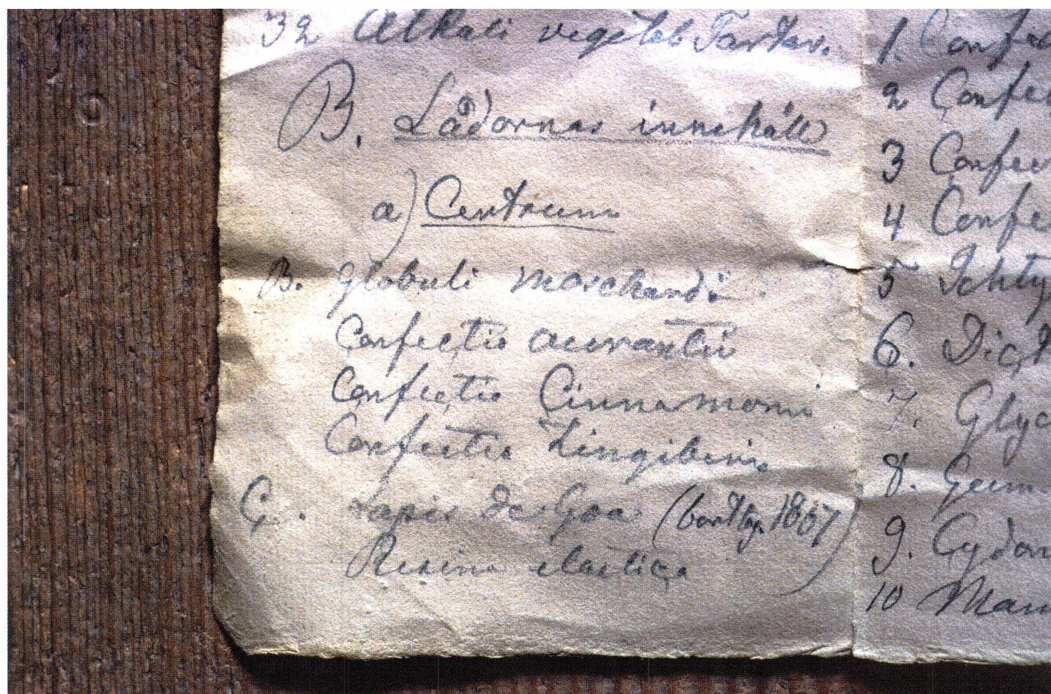 32 Alkali vegetab Tartar.
B. Lådornas innehåll
a) Centrum
B. Globuli moschardi
Confectio aurantii
Confectio Cinnamomi
Confectio Zingiberis
C. Lapis de Goa (borttag. 1867)
Resina elastica
1. Confec
2 Confec
3 Confec
4 Confe
5 Ichty
6. Dict
7. Glyc
8. Gum
9. Cydon
10 Man